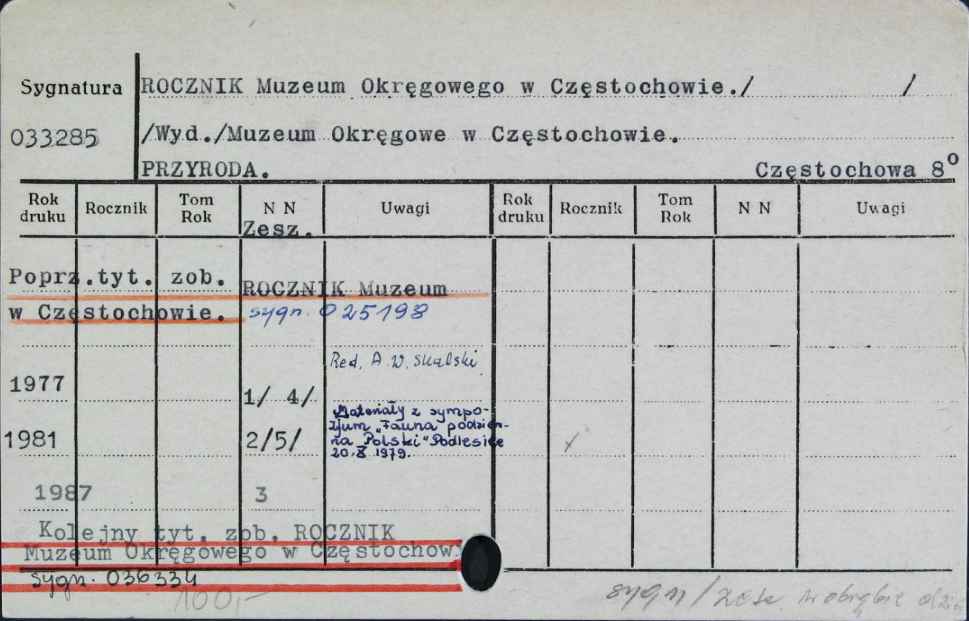 Sygnatura
ROCZNIK Muzeum Okręgowego w Częstochowie./ /
033285
/Wyd./Muzeum Okręgowe w Częstochowie.
PRZYRODA. Częstochowa 8°
Rok druku Rocznik Tom Rok N N Uwagi Rok druku Rocznik Tom Rok N N Uwagi
Zesz.
Poprz.tyt. zob. ROCZNIK Muzeum
w Częstochowie. sygn. 025198
Red. A.W. Skalski
1977 1/ 4/
Materiały z sympo-
zjum „Fauna podziem-
1981 2/5/ na Polski" Podlesice
20.X 1979.
1987 3
Kolejny tyt. zob. ROCZNIK
Muzeum Okręgowego w Częstochow
sygn. 036334
100,-
sygn/